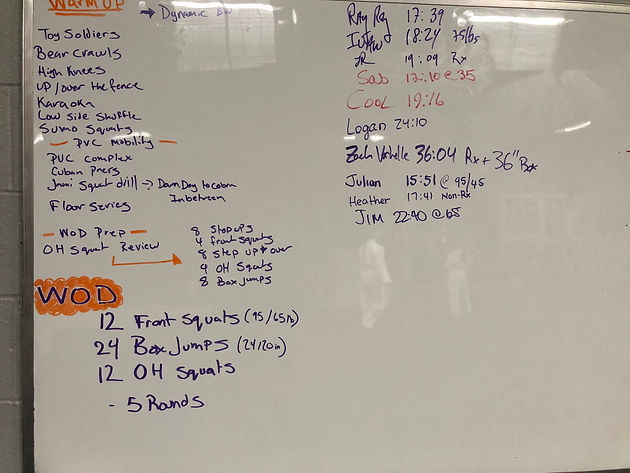 WARM UP → Dynamic
Toy Soldiers
Bear Crawls
High Knees
UP/over the fence
Karaoka
Low side shuffle
Sumo Squats
— PVC Mobility —
PVC complex
Cuban Press
Squat drill →
Inbetween
Floor Series
— WOD Prep —
OH Squat Review
8 Step UPS
4 front squats
8 Step UP & over
4 OH Squats
8 Box jumps
WOD
12 Front Squats (95/65lb)
24 Box Jumps (24/20in)
12 OH Squats
- 5 Rounds
Ray Ray 17:39
18:24 75lbs
JR 19:09 Rx
Sab 17:10 @ 35
COOL 19:16
Logan 24:10
Zach 36:04 Rx + 36" Box
Julian 15:51 @ 95/45
Heather 17:41 Non-Rx
JIM 22:40 @ 65